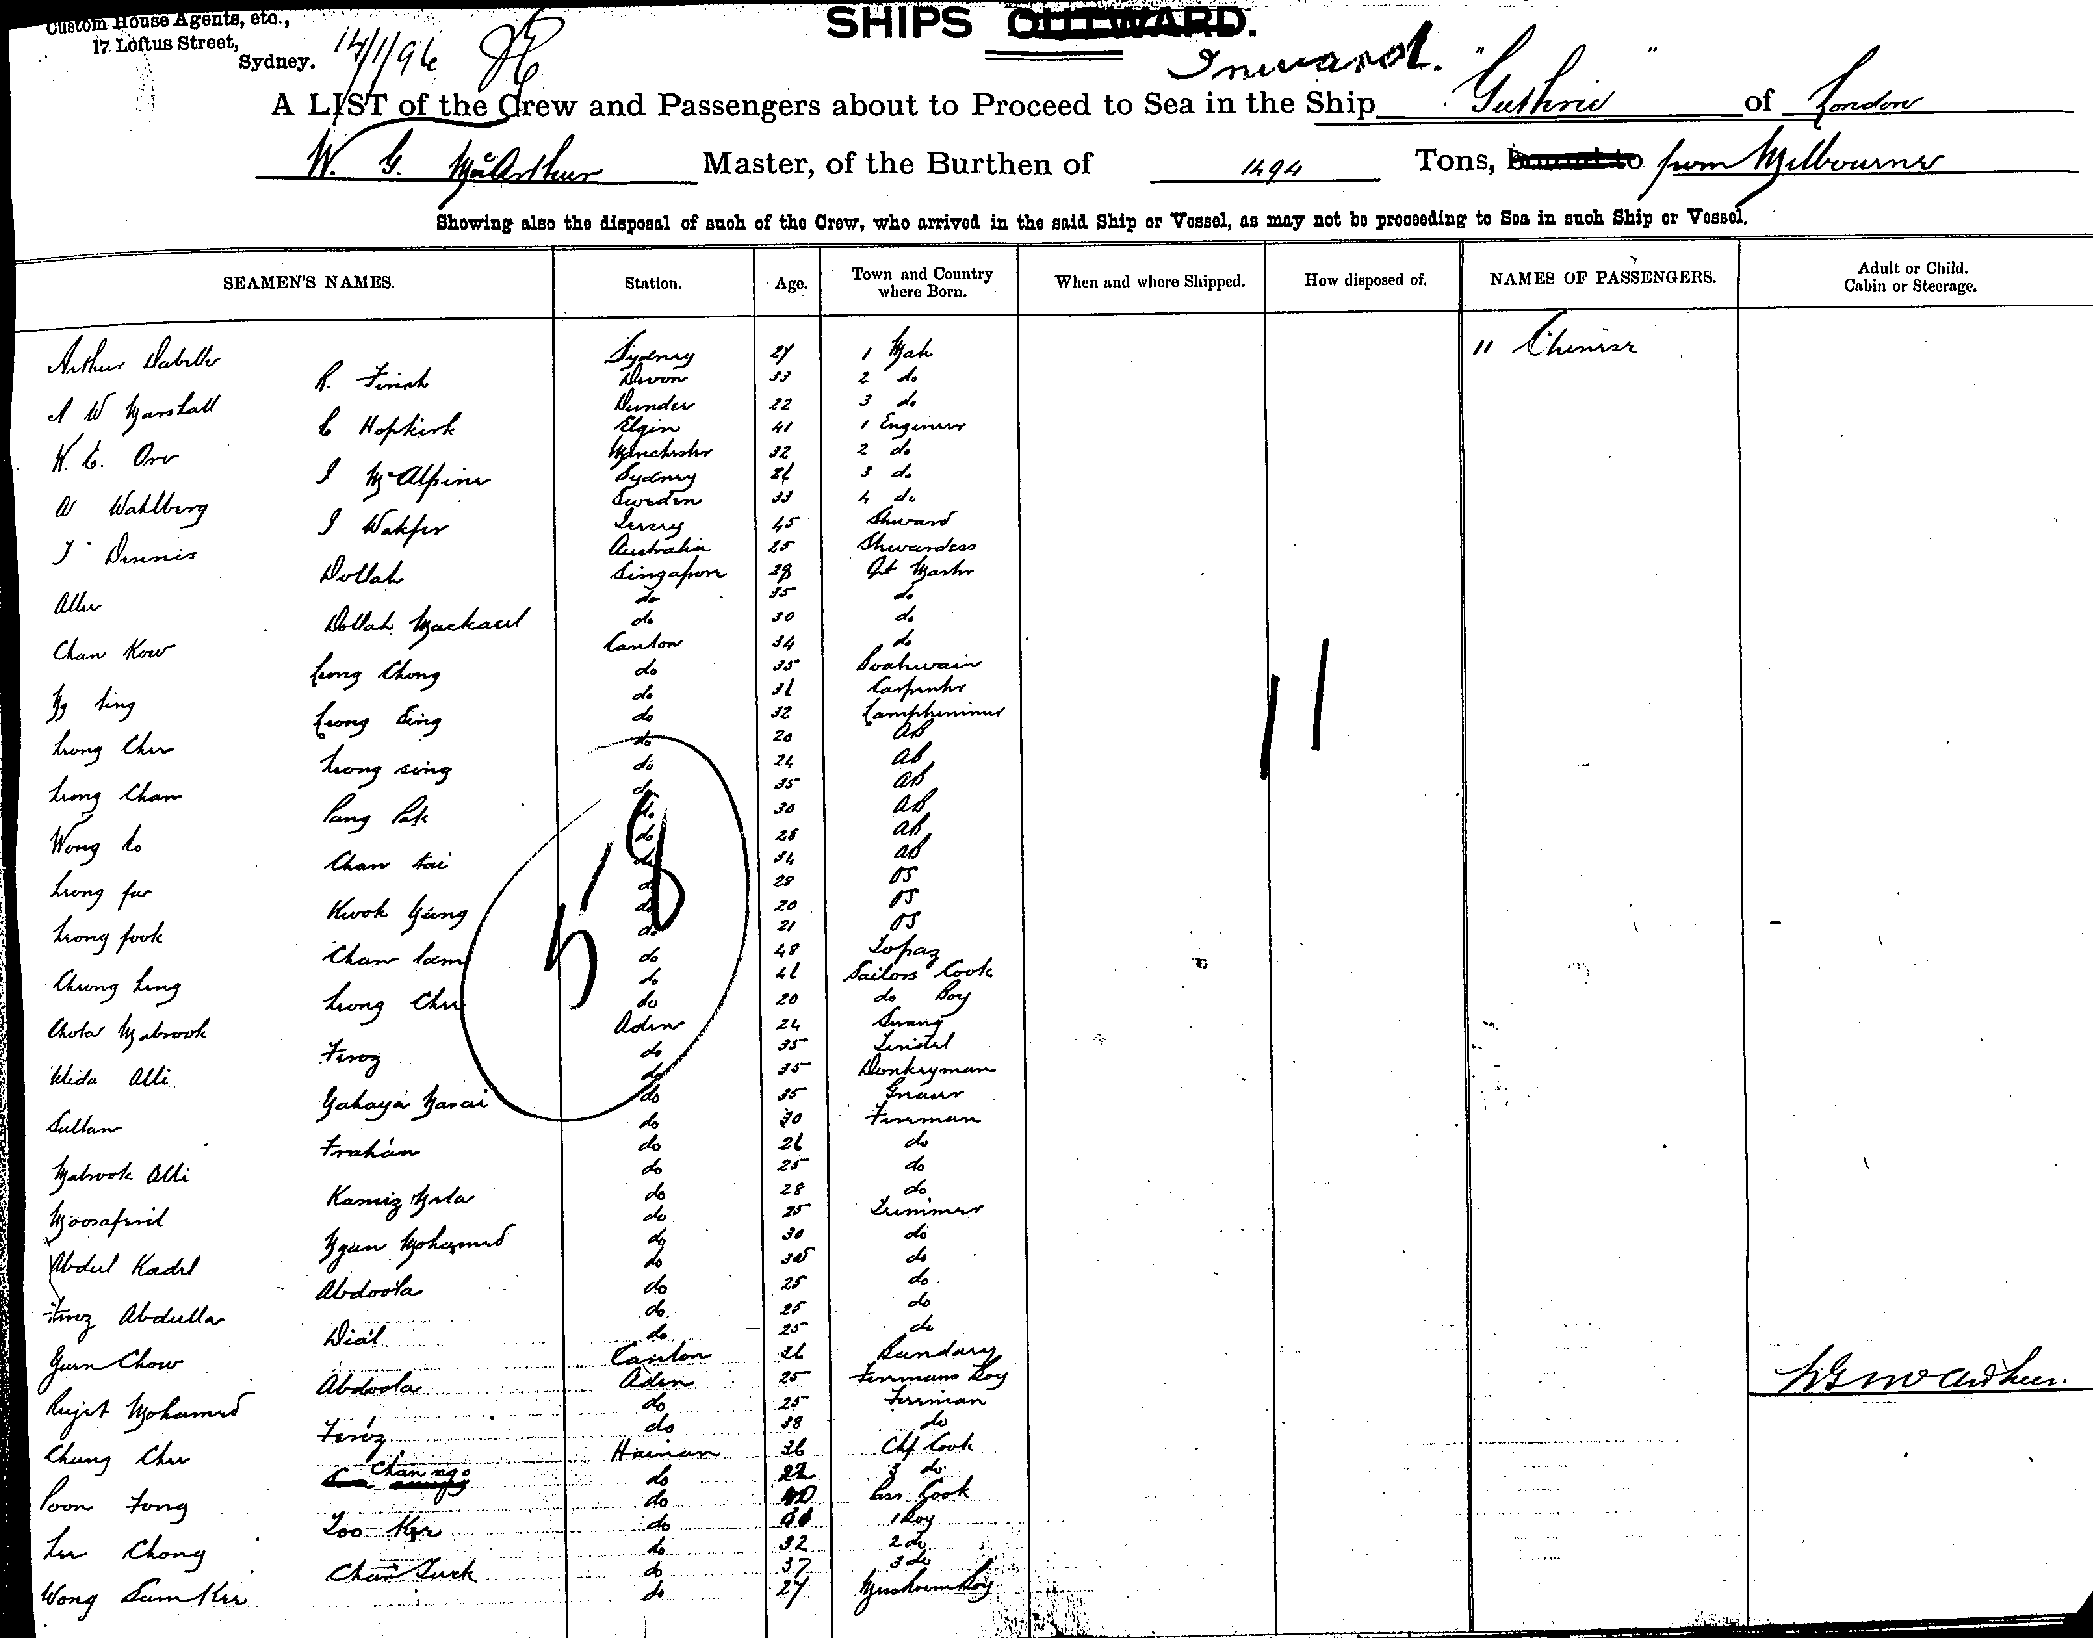 Custom House Agents, etc.,
17 Loftus Street,
Sydney.
14/1/96
SHIPS OUTWARD.
Inward.
A LIST of the Crew and Passengers about to Proceed to Sea in the Ship "Guthrie" of London
W. G. McArthur Master, of the Burthen of 1494 Tons, bound to from Melbourne
Showing also the disposal of such of the Crew, who arrived in the said Ship or Vessel, as may not be proceeding to Sea in such Ship or Vessel.
SEAMEN'S NAMES. Station. Age. Town and Country where Born. When and where Shipped. How disposed of. NAMES OF PASSENGERS. Adult or Child. Cabin or Steerage.
Arthur Dabelle Sydney 27 1 Mate 11 Chinese
R. Finch Devon 33 2 do
A W Marshall Dundee 22 3 do
C Hopkirk Elgin 41 1 Engineer
W. E. Orr Manchester 32 2 do
J McAlpine Sydney 26 3 do
A Wahlberg Sweden 33 4 do
J Wakfer Jersey 45 Steward
J Dennis Australia 25 Stewardess
Dollah Singapore 28 Qt Master
Allie do 35 do
Dollah do 30 do
Chan Kow Canton 34 do
Leong Chong do 35 Boatswain
Ng Sing do 36 Carpenter
Leong Sing do 32 Lamptrimmer
Leong Chee do 20 AB
Leong Sing do 24 AB
Leong Chan do 35 AB
Pang Pak do 30 AB
Wong do 28 AB
Chan Kai do 34 AB
Leong do 28 OS
Kwok Gung do 20 OS
Leong fook do 21 OS
Chan Lam do 48 Topaz
Chung Ling do 46 Sailors Cook
Leong Chee do 20 do Boy
58
11
Mabrook Aden 24 Serang
Feroz do 35 Tindal
Alli do 35 Donkeyman
Yahaya do 35
Sultan do 30 Fireman
Frahan do 26 do
Mabrook Alli do 25 do
Kamiz do 28 do
do 25 Trimmer
Mohamed do 30 do
Abdul Kadel do do
Abdoola do 25 do
Feroz Abdulla do 25 do
Dial do 25 do
Chow Canton 26
Abdoola Aden 25 Firemans Boy
Mohamed do 25 Fireman
Feroz do 38 do
Chung Chee Hainan 36 Chf Cook
Chan ngo do 22 3 do
Poon Fong do 40 Cook
Too Kee do 1 Boy
Lee Chong do 32 2 do
Chan Suck do 37 3 do
Wong Sum Kee do 27 Messroom Boy
W G McArthur.